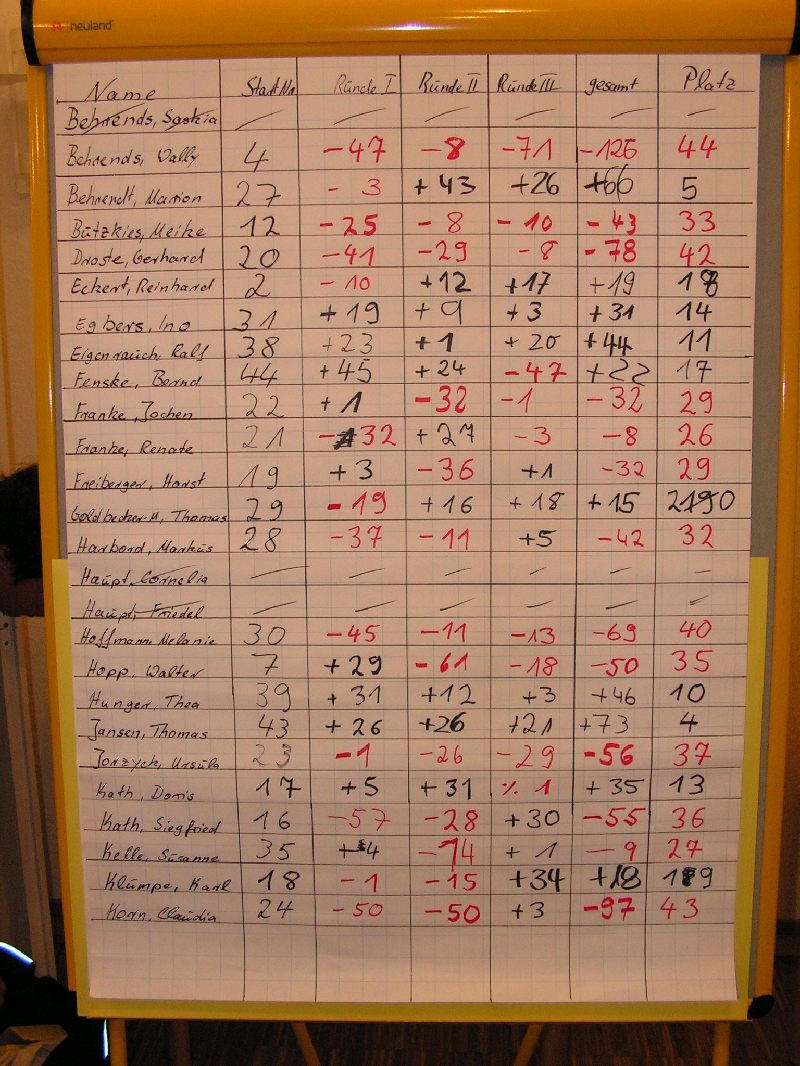 neuland
Name Start Nr Runde I Runde II Runde III gesamt Platz
Behrends, Saskia — — — — — —
Behrends, Wally 4 -47 -8 -71 -126 44
Behrendt, Marion 27 -3 +43 +26 +66 5
Bützkies, Meike 12 -25 -8 -10 -43 33
Droste, Gerhard 20 -41 -29 -8 -78 42
Eckert, Reinhard 2 -10 +12 +17 +19 18
Egbers, Ino 31 +19 +9 +3 +31 14
Eigenrauch, Ralf 38 +23 +1 +20 +44 11
Fenske, Bernd 44 +45 +24 -47 +22 17
Franke, Jochen 22 +1 -32 -1 -32 29
Franke, Renate 21 -32 +27 -3 -8 26
Freiberger, Horst 19 +3 -36 +1 -32 29
Goldbecker-M, Thomas 29 -19 +16 +18 +15
Harbord, Markus 28 -37 -11 +5 -42 32
Haupt, Cornelia — — — — — —
Haupt, Friedel — — — — — —
Hoffmann Melanie 30 -45 -11 -13 -69 40
Hopp, Walter 7 +29 -61 -18 -50 35
Hunger, Thea 39 +31 +12 +3 +46 10
Jansen, Thomas 43 +26 +26 +21 +73 4
Jorzyck, Ursula 23 -1 -26 -29 -56 37
Kath, Doris 17 +5 +31 % 1 +35 13
Kath, Siegfried 16 -57 -28 +30 -55 36
Kelle, Susanne 35 +4 -14 +1 -9 27
Klumpe, Karl 18 -1 -15 +34 +18 19
Korn, Claudia 24 -50 -50 +3 -97 43